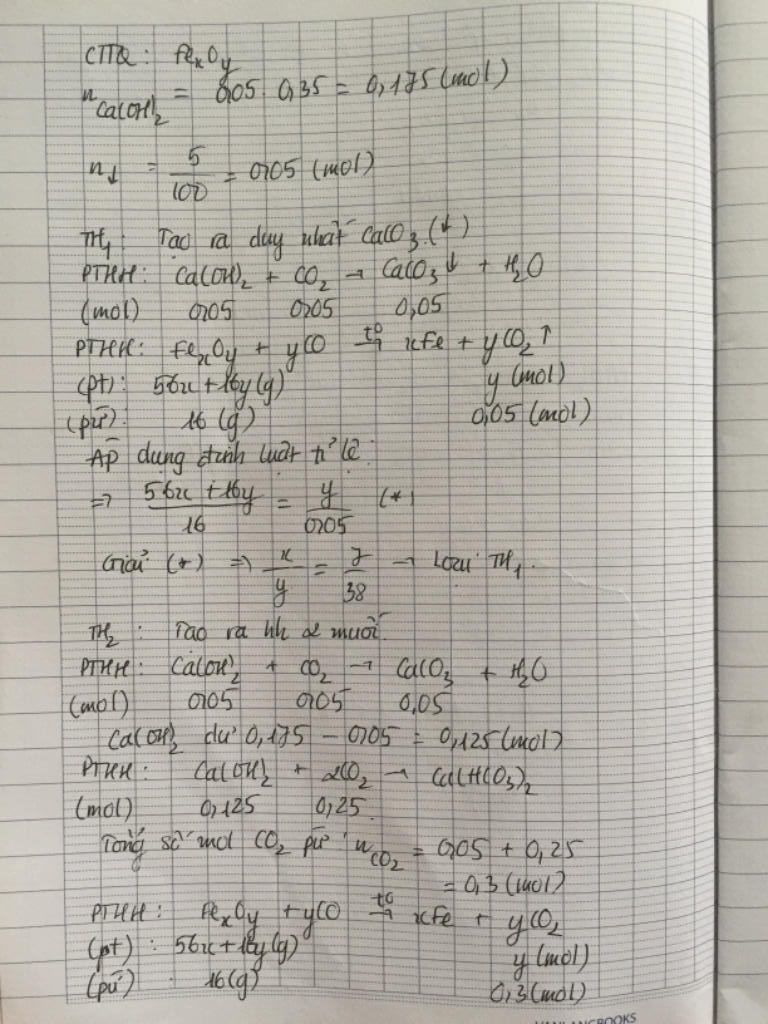 CTTQ: FexOy
nCa(OH)2 = 0,05. 0,35 = 0,175 (mol)
n↓ = 5/100 = 0,05 (mol)
TH1: Tạo ra duy nhất CaCO3 (↓)
PTHH: Ca(OH)2 + CO2 → CaCO3↓ + H2O
(mol) 0,05 0,05 0,05
PTHH: FexOy + yCO t° → xFe + yCO2↑
(pt): 56x+16y(g) y (mol)
(pứ): 16 (g) 0,05 (mol)
Áp dụng định luật tỉ lệ:
=> (56x + 16y)/16 = y/0,05 (*)
Giải (*) => x/y = 7/38 → Loại TH1.
TH2: Tạo ra hh 2 muối.
PTHH: Ca(OH)2 + CO2 → CaCO3 + H2O
(mol) 0,05 0,05 0,05
Ca(OH)2 dư 0,175 - 0,05 = 0,125 (mol)
PTHH: Ca(OH)2 + 2CO2 → Ca(HCO3)2
(mol) 0,125 0,25
Tổng số mol CO2 pứ: nCO2 = 0,05 + 0,25
= 0,3 (mol)
PTHH: FexOy + yCO t° → xFe + yCO2
(pt): 56x+16y(g) y (mol)
(pứ) 16(g) 0,3 (mol)